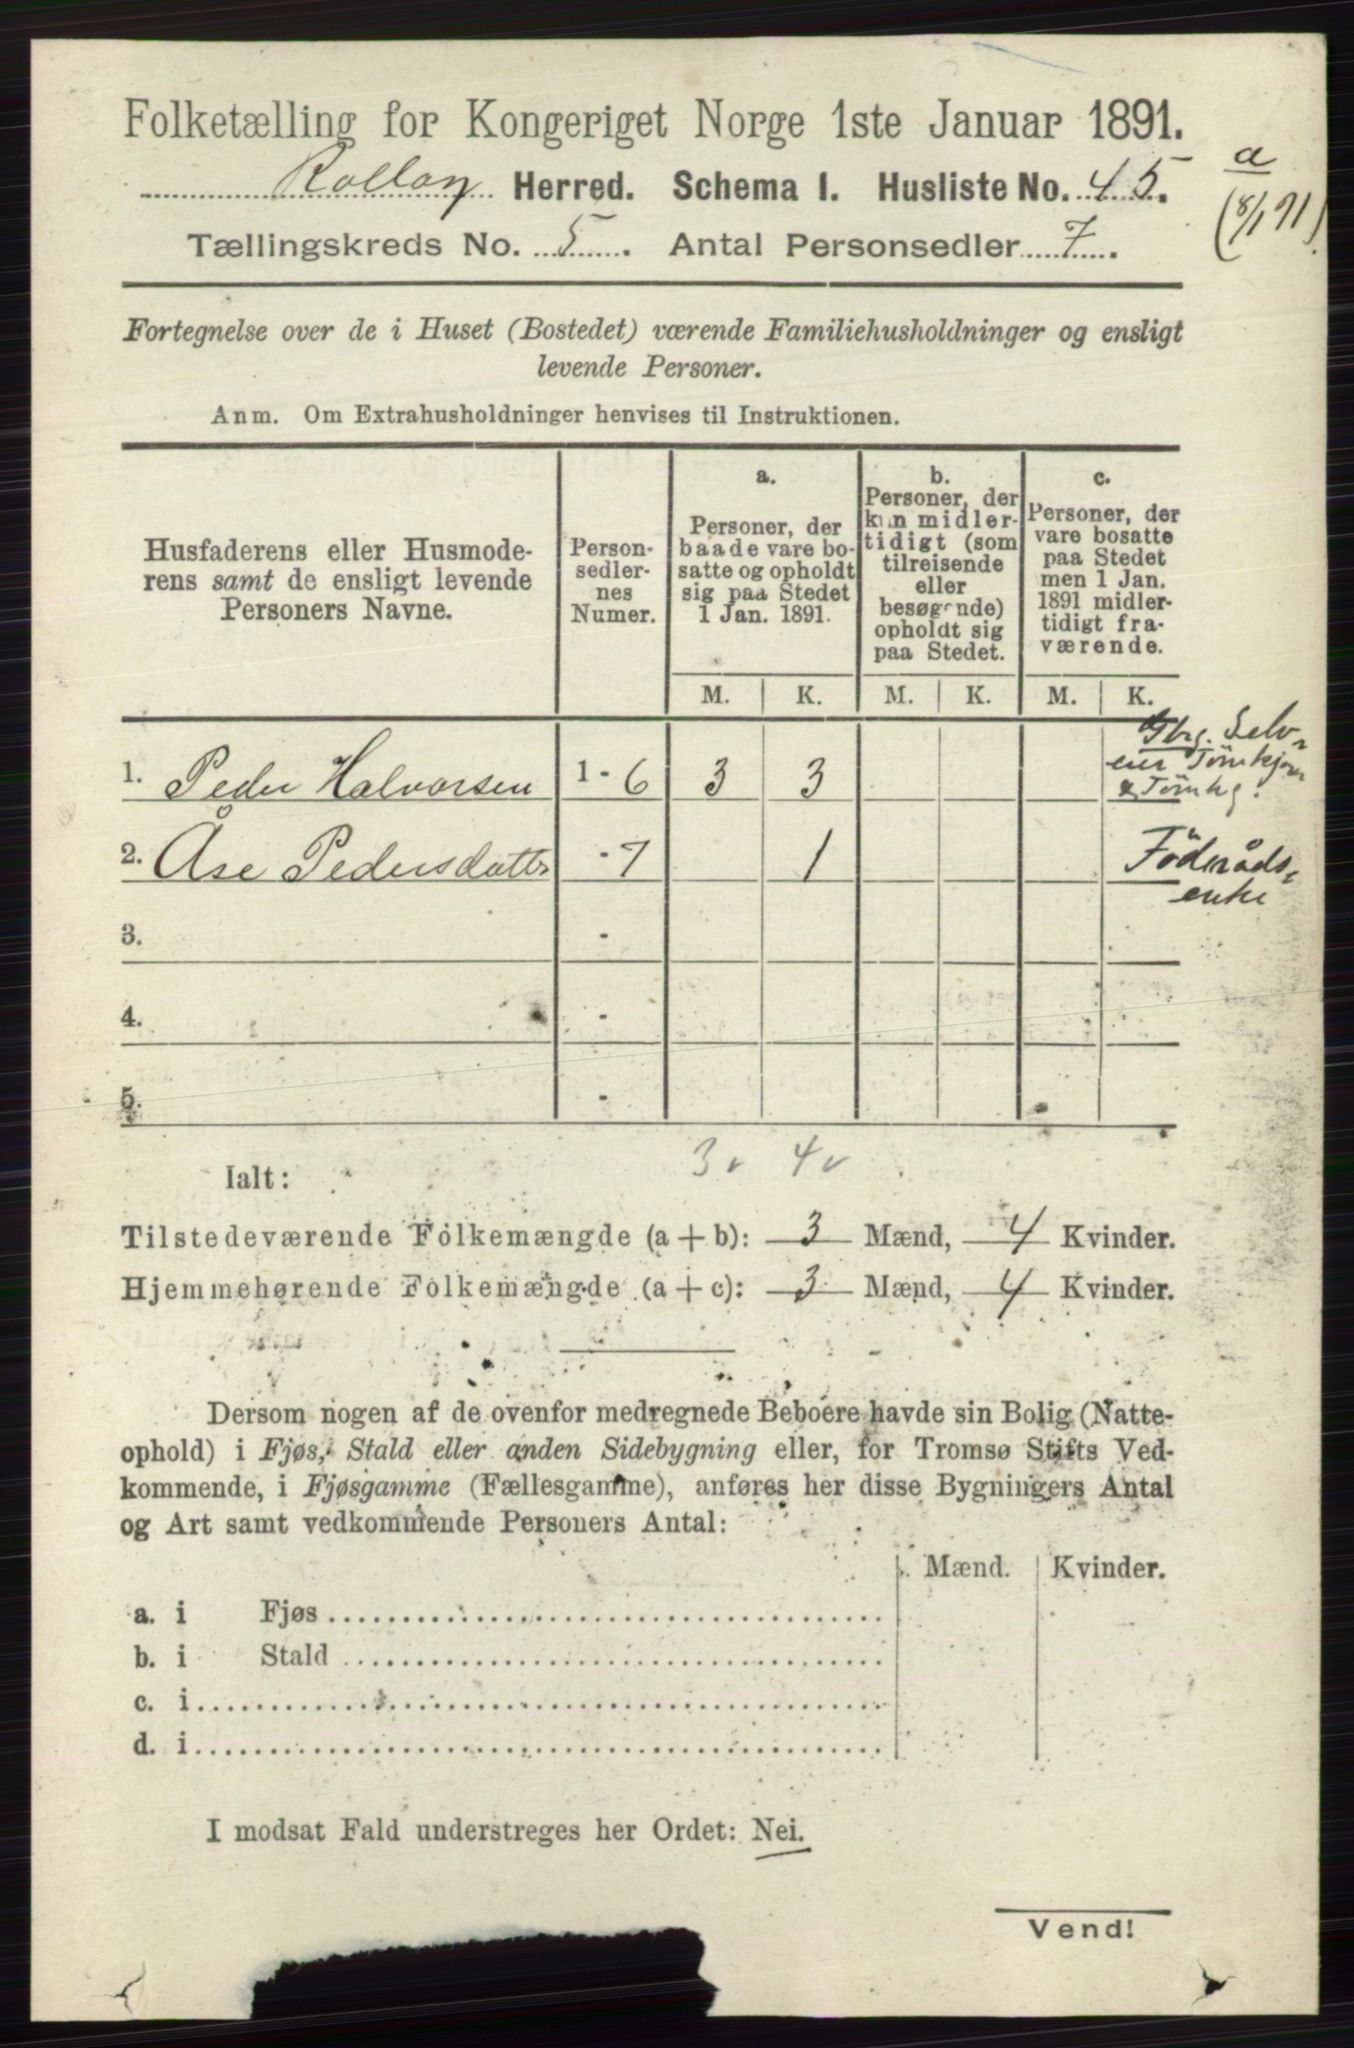 Folketælling for Kongeriget Norge 1ste Januar 1891.
Rollag Herred. Schema I. Husliste No. 45.
a
(8/1 91)
Tællingskreds No. 5. Antal Personsedler 7.
Fortegnelse over de i Huset (Bostedet) værende Familiehusholdninger og ensligt
levende Personer.
Anm. Om Extrahusholdninger henvises til Instruktionen.
Husfaderens eller Husmode-
rens samt de ensligt levende
Personers Navne.
Person-
sedler-
nes
Numer.
a.
Personer, der
baade vare bo-
satte og opholdt
sig paa Stedet
1 Jan. 1891.
b.
Personer, der
kun midler-
tidigt (som
tilreisende
eller
besøgende)
opholdt sig
paa Stedet.
c.
Personer, der
vare bosatte
paa Stedet
men 1 Jan.
1891 midler-
tidigt fra-
værende.
M. K. M. K. M. K.
1. Peder Halvorsen 1 - 6 3 3
Gbrg. Selv-
eier
2. Åse Pedersdatter - 7 1
Föderåds-
enke
3. -
4. -
5. -
3 v 4 v
Ialt:
Tilstedeværende Folkemængde (a + b): 3 Mænd, 4 Kvinder.
Hjemmehørende Folkemængde (a + c): 3 Mænd, 4 Kvinder.
Dersom nogen af de ovenfor medregnede Beboere havde sin Bolig (Natte-
ophold) i Fjøs, Stald eller anden Sidebygning eller, for Tromsø Stifts Ved-
kommende, i Fjøsgamme (Fællesgamme), anføres her disse Bygningers Antal
og Art samt vedkommende Personers Antal:
Mænd. Kvinder.
a. i Fjøs
b. i Stald
c. i
d. i
I modsat Fald understreges her Ordet: Nei.
Vend!